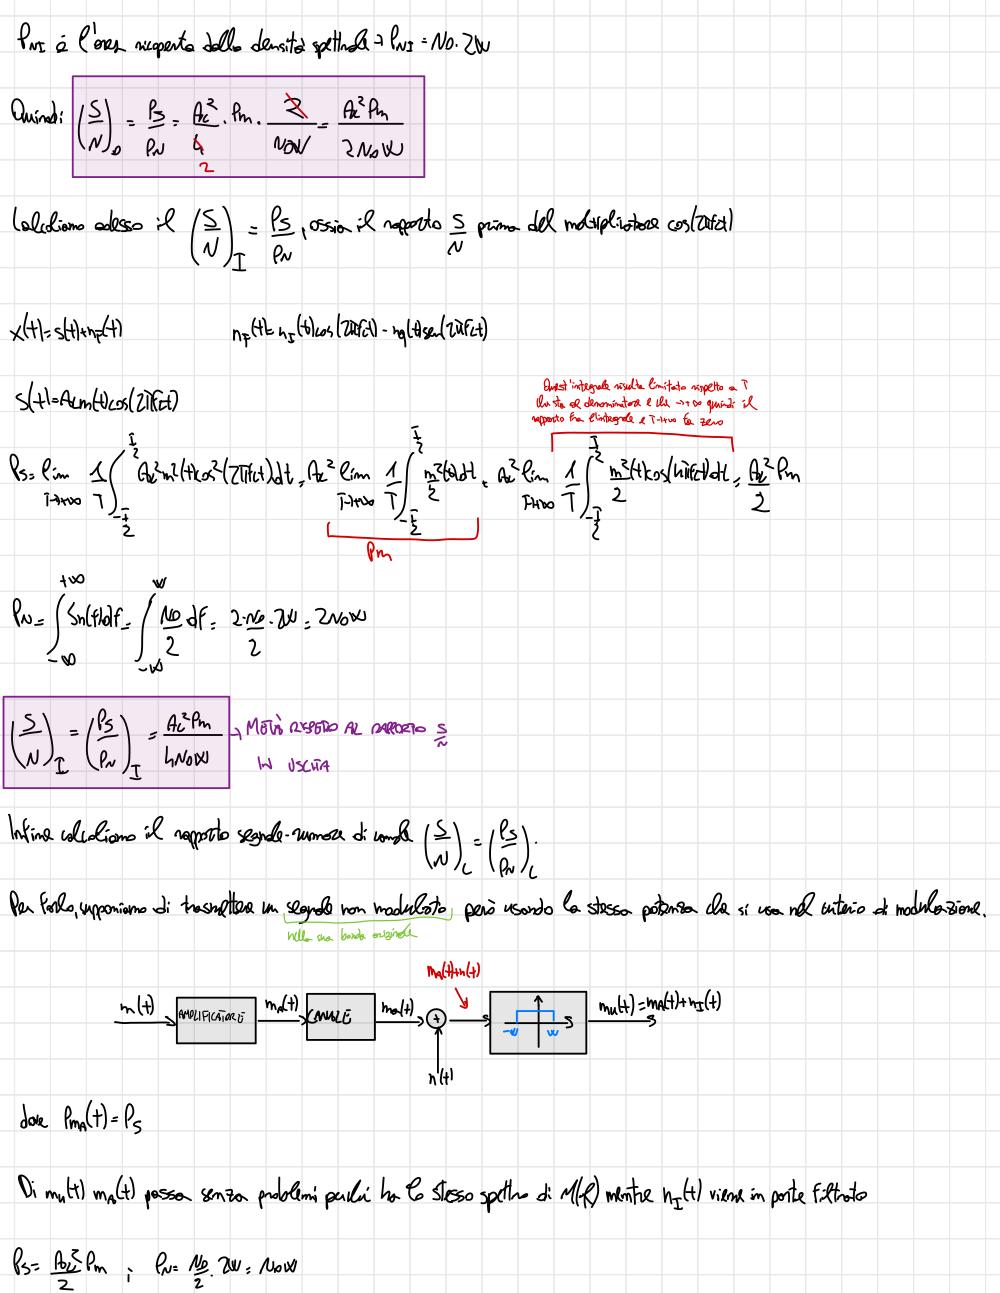 P_NI è l'area ricoperta dalla densità spettrale → P_NI = N0·2W
Quindi: (S/N)_D = PS/PN = Ac²/4 · Pm · 2/N0W = Ac²Pm/2N0W
2
Calcoliamo adesso il (S/N)_I = PS/PN, ossia il rapporto S/N prima del moltiplicatore cos(2πfct)
x(t)=s(t)+n_F(t) n_F(t)=n_I(t)cos(2πfct)-nq(t)sen(2πfct)
s(t)=Acm(t)cos(2πfct)
Quest'integrale risulta limitato rispetto a T
che sta al denominatore e che →+∞ quindi il
rapporto fra l'integrale e T→+∞ fa zero
Ps = lim T→+∞ 1/T ∫_{-T/2}^{T/2} Ac²m²(t)cos²(2πfct)dt = Ac² lim T→+∞ 1/T ∫_{-T/2}^{T/2} m²(t)/2 dt + Ac² lim T→+∞ 1/T ∫_{-T/2}^{T/2} m²(t)/2 cos(4πfct)dt = Ac²/2 Pm
Pm
PN = ∫_{-∞}^{+∞} Sn(f)df = ∫_{-W}^{W} N0/2 df = 2·N0/2·2W = 2N0W
(S/N)_I = (PS/PN)_I = Ac²Pm/4N0W → METÀ RISPETTO AL RAPPORTO S/N
IN USCITA
Infine calcoliamo il rapporto segnale-rumore di canale (S/N)_C = (PS/PN)_C.
Per farlo, supponiamo di trasmettere un segnale non modulato però usando la stessa potenza che si usa nel criterio di modulazione.
nella sua banda originale
mA(t)+n(t)
m(t) AMPLIFICATORE mA(t) CANALE mA(t) + -W W mu(t)=mA(t)+n_I(t)
n(t)
dove PmA(t)=PS
Di mu(t) mA(t) passa senza problemi perché ha lo stesso spettro di M(f) mentre n_I(t) viene in parte filtrato
PS = Ac²/2 Pm ; PN = N0/2 · 2W = N0W